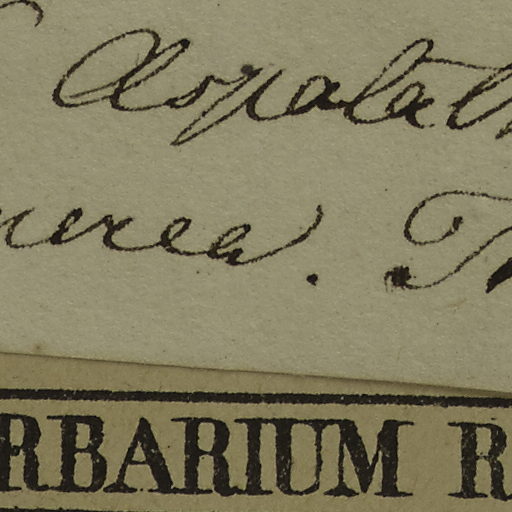 Aspalath
nerea. Th
RBARIUM R